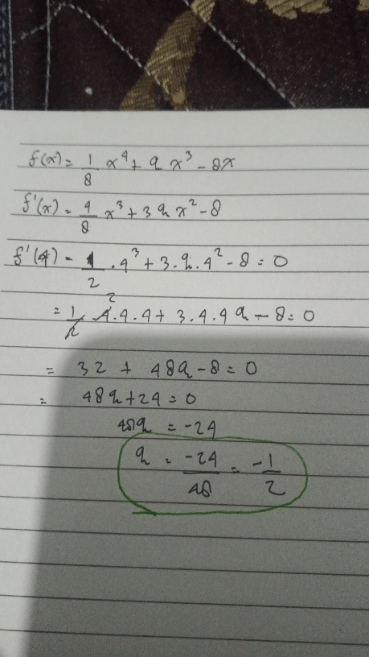 f(x) = 1/8 x⁴ + a x³ - 8x
f'(x) = 4/8 x³ + 3 a x² - 8
f'(4) = 1/2 . 4³ + 3 . a . 4² - 8 = 0
= 1/2 . 4 . 4 . 4 + 3 . 4 . 4 a - 8 = 0
= 32 + 48a - 8 = 0
= 48a + 24 = 0
48a = -24
a = -24/48 = -1/2